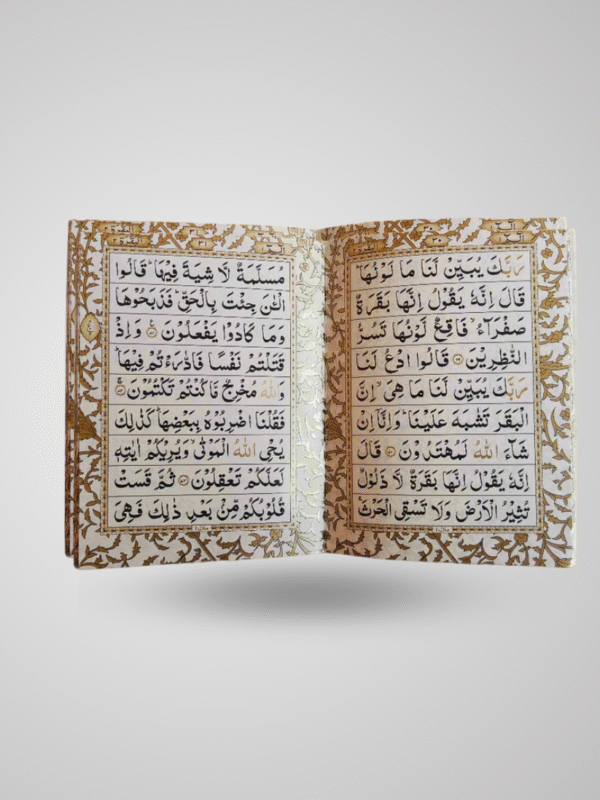 رَبَّكَ يُبَيِّنْ لَّنَا مَا لَوْنُهَا ؕ
قَالَ اِنَّهٗ يَقُوْلُ اِنَّهَا بَقَرَةٌ
صَفْرَآءُ ۙ فَاقِعٌ لَّوْنُهَا تَسُرُّ
النّٰظِرِيْنَ ۝۶۹ قَالُوا ادْعُ لَنَا
رَبَّكَ يُبَيِّنْ لَّنَا مَا هِيَ ۙ اِنَّ
الْبَقَرَ تَشٰبَهَ عَلَيْنَا ؕ وَاِنَّاۤ اِنْ
شَآءَ اللّٰهُ لَمُهْتَدُوْنَ ۝۷۰ قَالَ
اِنَّهٗ يَقُوْلُ اِنَّهَا بَقَرَةٌ لَّا ذَلُوْلٌ
تُثِيْرُ الْاَرْضَ وَلَا تَسْقِي الْحَرْثَ ۚ
مُسَلَّمَةٌ لَّا شِيَةَ فِيْهَا ؕ قَالُوا
الْـٰٔنَ جِئْتَ بِالْحَقِّ ؕ فَذَبَحُوْهَا
وَمَا كَادُوْا يَفْعَلُوْنَ ۝۷۱ وَاِذْ
قَتَلْتُمْ نَفْسًا فَادّٰرَءْتُمْ فِيْهَا ؕ
وَاللّٰهُ مُخْرِجٌ مَّا كُنْتُمْ تَكْتُمُوْنَ ۝۷۲
فَقُلْنَا اضْرِبُوْهُ بِبَعْضِهَا ؕ كَذٰلِكَ
يُحْيِ اللّٰهُ الْمَوْتٰى ۙ وَيُرِيْكُمْ اٰيٰتِهٖ
لَعَلَّكُمْ تَعْقِلُوْنَ ۝۷۳ ثُمَّ قَسَتْ
قُلُوْبُكُمْ مِّنْۢ بَعْدِ ذٰلِكَ فَهِيَ